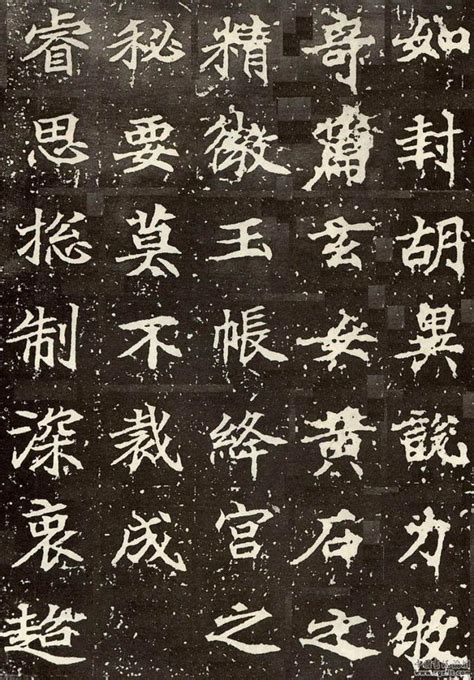 如封胡異說力牧
奇篇玄女黃石之
精微玉帳絳宮之
秘要莫不裁成
睿思揔制深衷超